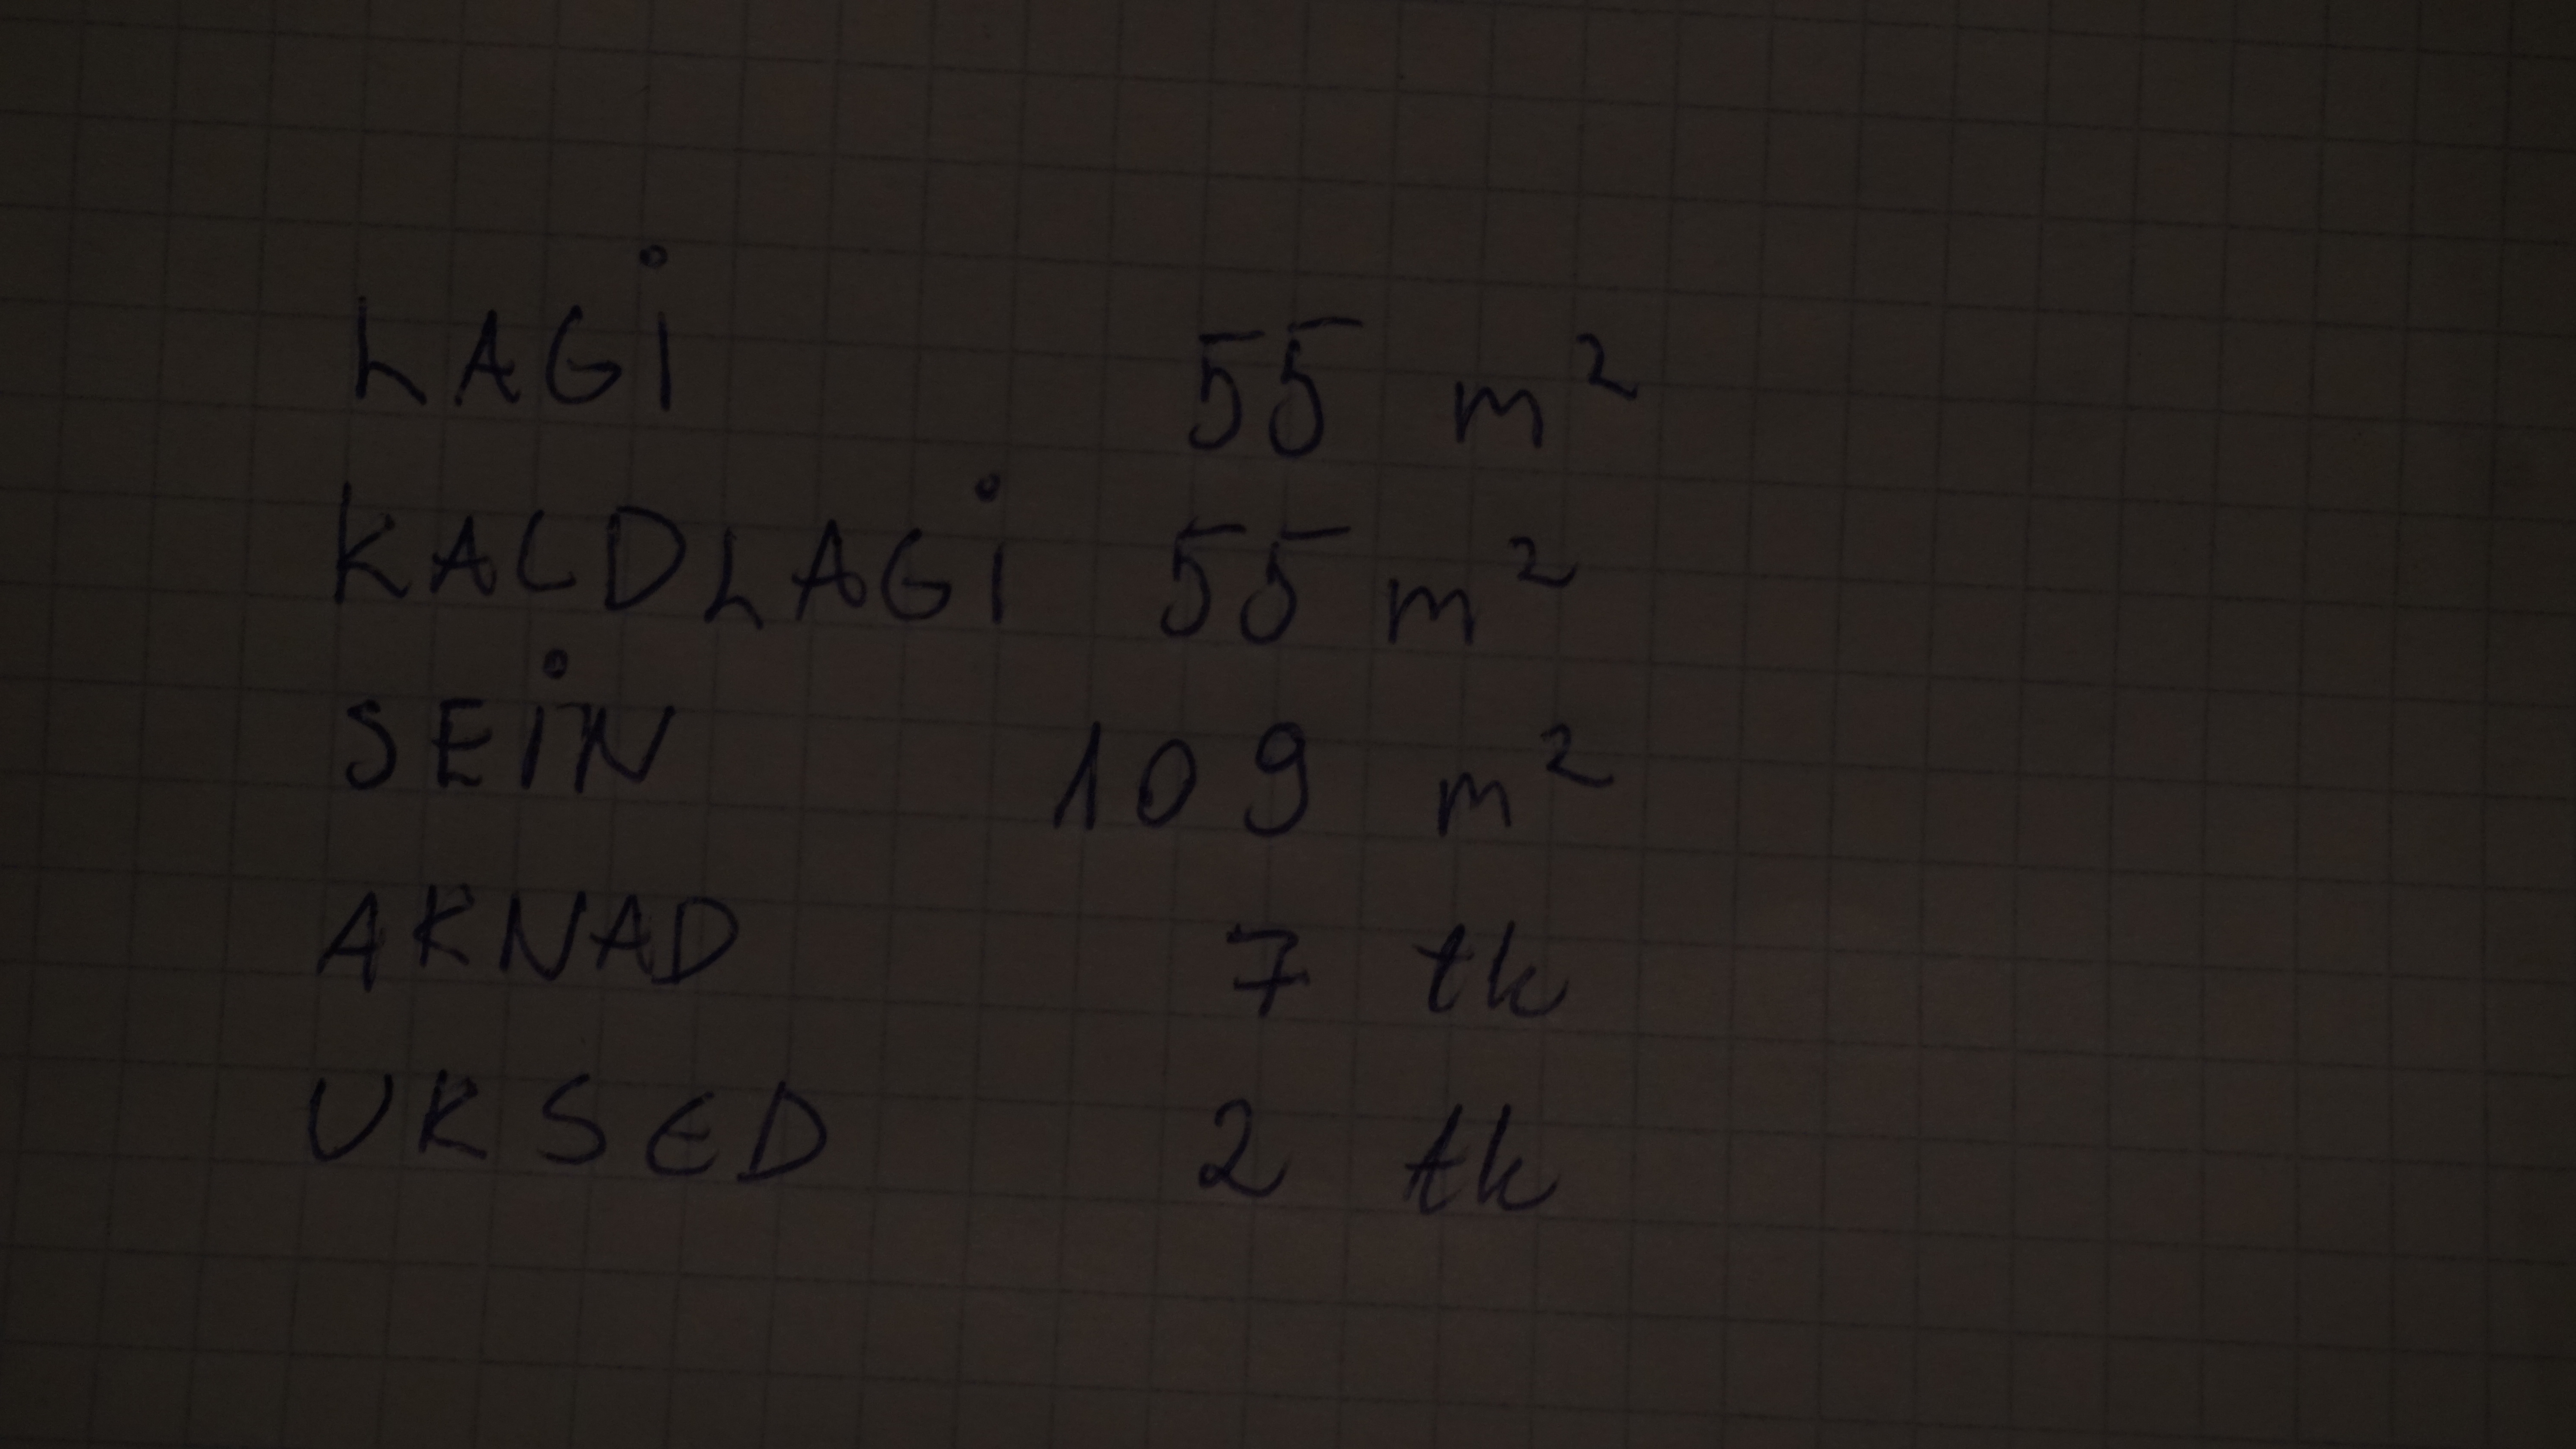 LAGI 55 m²
KALDLAGI 55 m²
SEIN 109 m²
AKNAD 7 tk
UKSED 2 tk